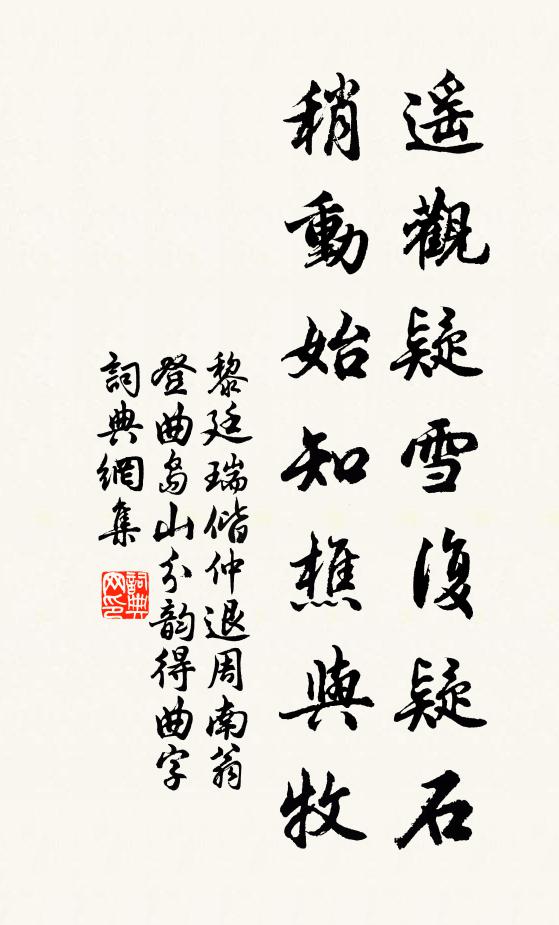 遥觀疑雪復疑石
稍動始知樵與牧
黎廷瑞偕仲退周南翁
登曲岛山分韵得曲字
詞典網集
詞典网印